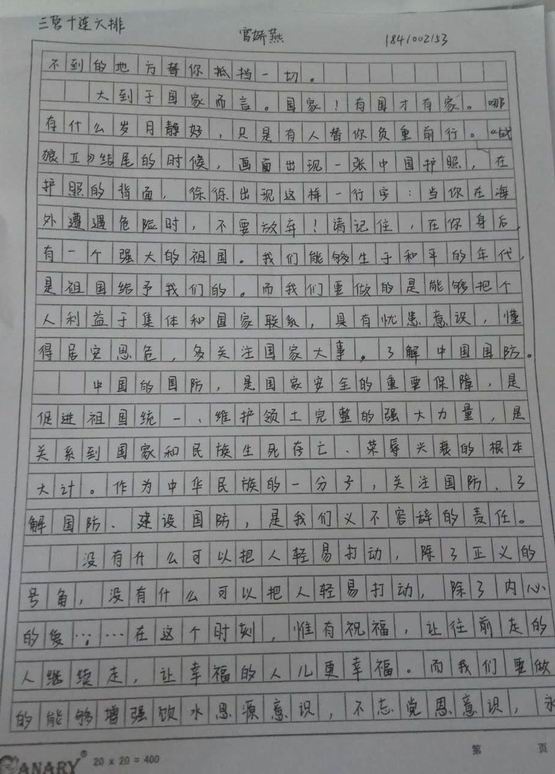 三营十连六排 宫妍燕 1841002153
不到的地方替你抵挡一切。
大到于国家而言。国家！有国才有家。哪
有什么岁月静好，只是有人替你负重前行。《战
狼Ⅱ》结尾的时候，画面出现一张中国护照，在
护照的背面，徐徐出现这样一行字：当你在海
外遭遇危险时，不要放弃！请记住，在你身后，
有一个强大的祖国。我们能够生于和平的年代，
是祖国给予我们的。而我们要做的是能够把个
人利益于集体和国家联系，具有忧患意识，懂
得居安思危，多关注国家大事。了解中国国防。
中国的国防，是国家安全的重要保障，是
促进祖国统一、维护领土完整的强大力量，是
关系到国家和民族生死存亡、荣辱兴衰的根本
大计。作为中华民族的一分子，关注国防、了
解国防、建设国防，是我们义不容辞的责任。
没有什么可以把人轻易打动，除了正义的
号角，没有什么可以把人轻易打动，除了内心
的爱……在这个时刻，惟有祝福，让往前走的
人继续走，让幸福的人儿更幸福。而我们要做
的能够增强饮水思源意识，不忘党恩意识，永
CANARY® 20 x 20 = 400 第 页